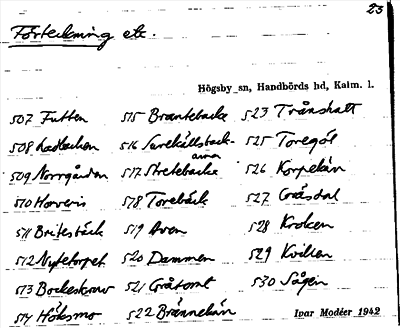 23
Förteckning etc.
Högsby sn, Handbörds hd, Kalm. l.
507 Futten 515 Brantebacke 523 Trånshatt
508 Ladbacken 516 Surekällsback- 525 Toregöl
509 Norrgården 517 Stretebacke 526 Korpekärr
510 Horveris 518 Torebäck 527 Gråsdal
511 Britesbäck 519 Aven 528 Kroken
512 Nytetorpet 520 Dammen 529 Kvillen
513 Bockeskruv 521 Gråtomt 530 Sågen
514 Höksmo 522 Brännekärr
Ivar Modéer 1942